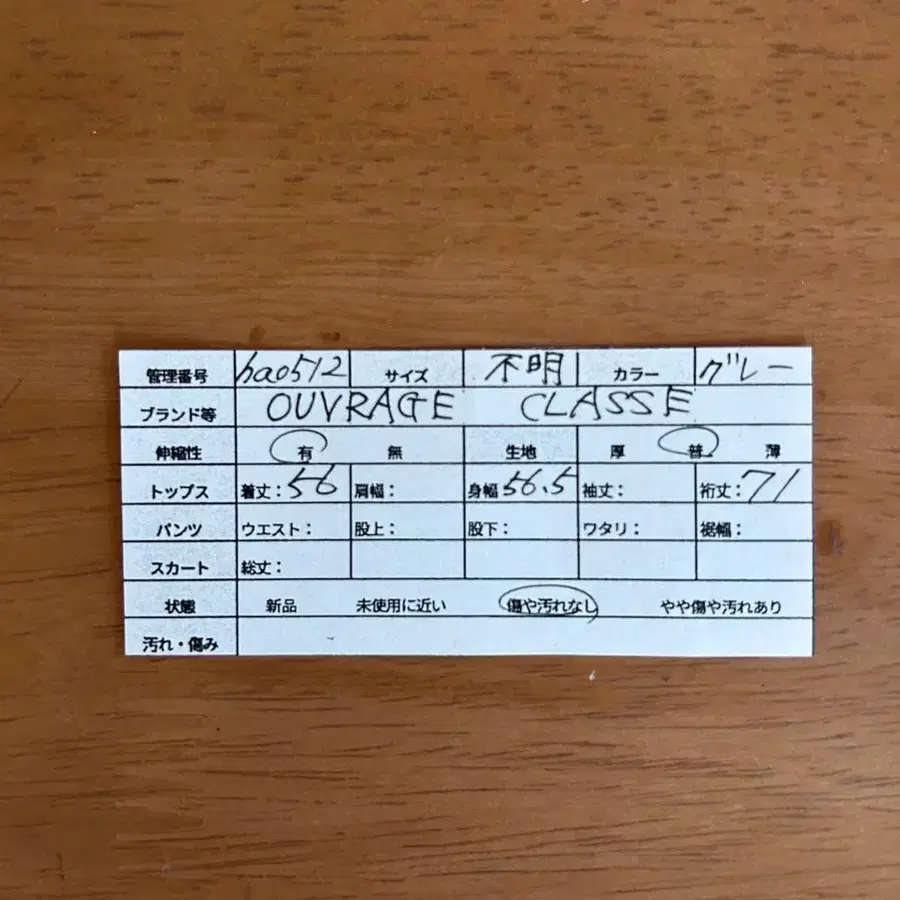 管理番号 ha0512 サイズ 不明 カラー グレー
ブランド等 OUVRAGE CLASSE
伸縮性 有 無 生地 厚 普 薄
トップス 着丈:56 肩幅: 身幅56.5 袖丈: 裄丈:71
パンツ ウエスト: 股上: 股下: ワタリ: 裾幅:
スカート 総丈:
状態 新品 未使用に近い 傷や汚れなし やや傷や汚れあり
汚れ・傷み